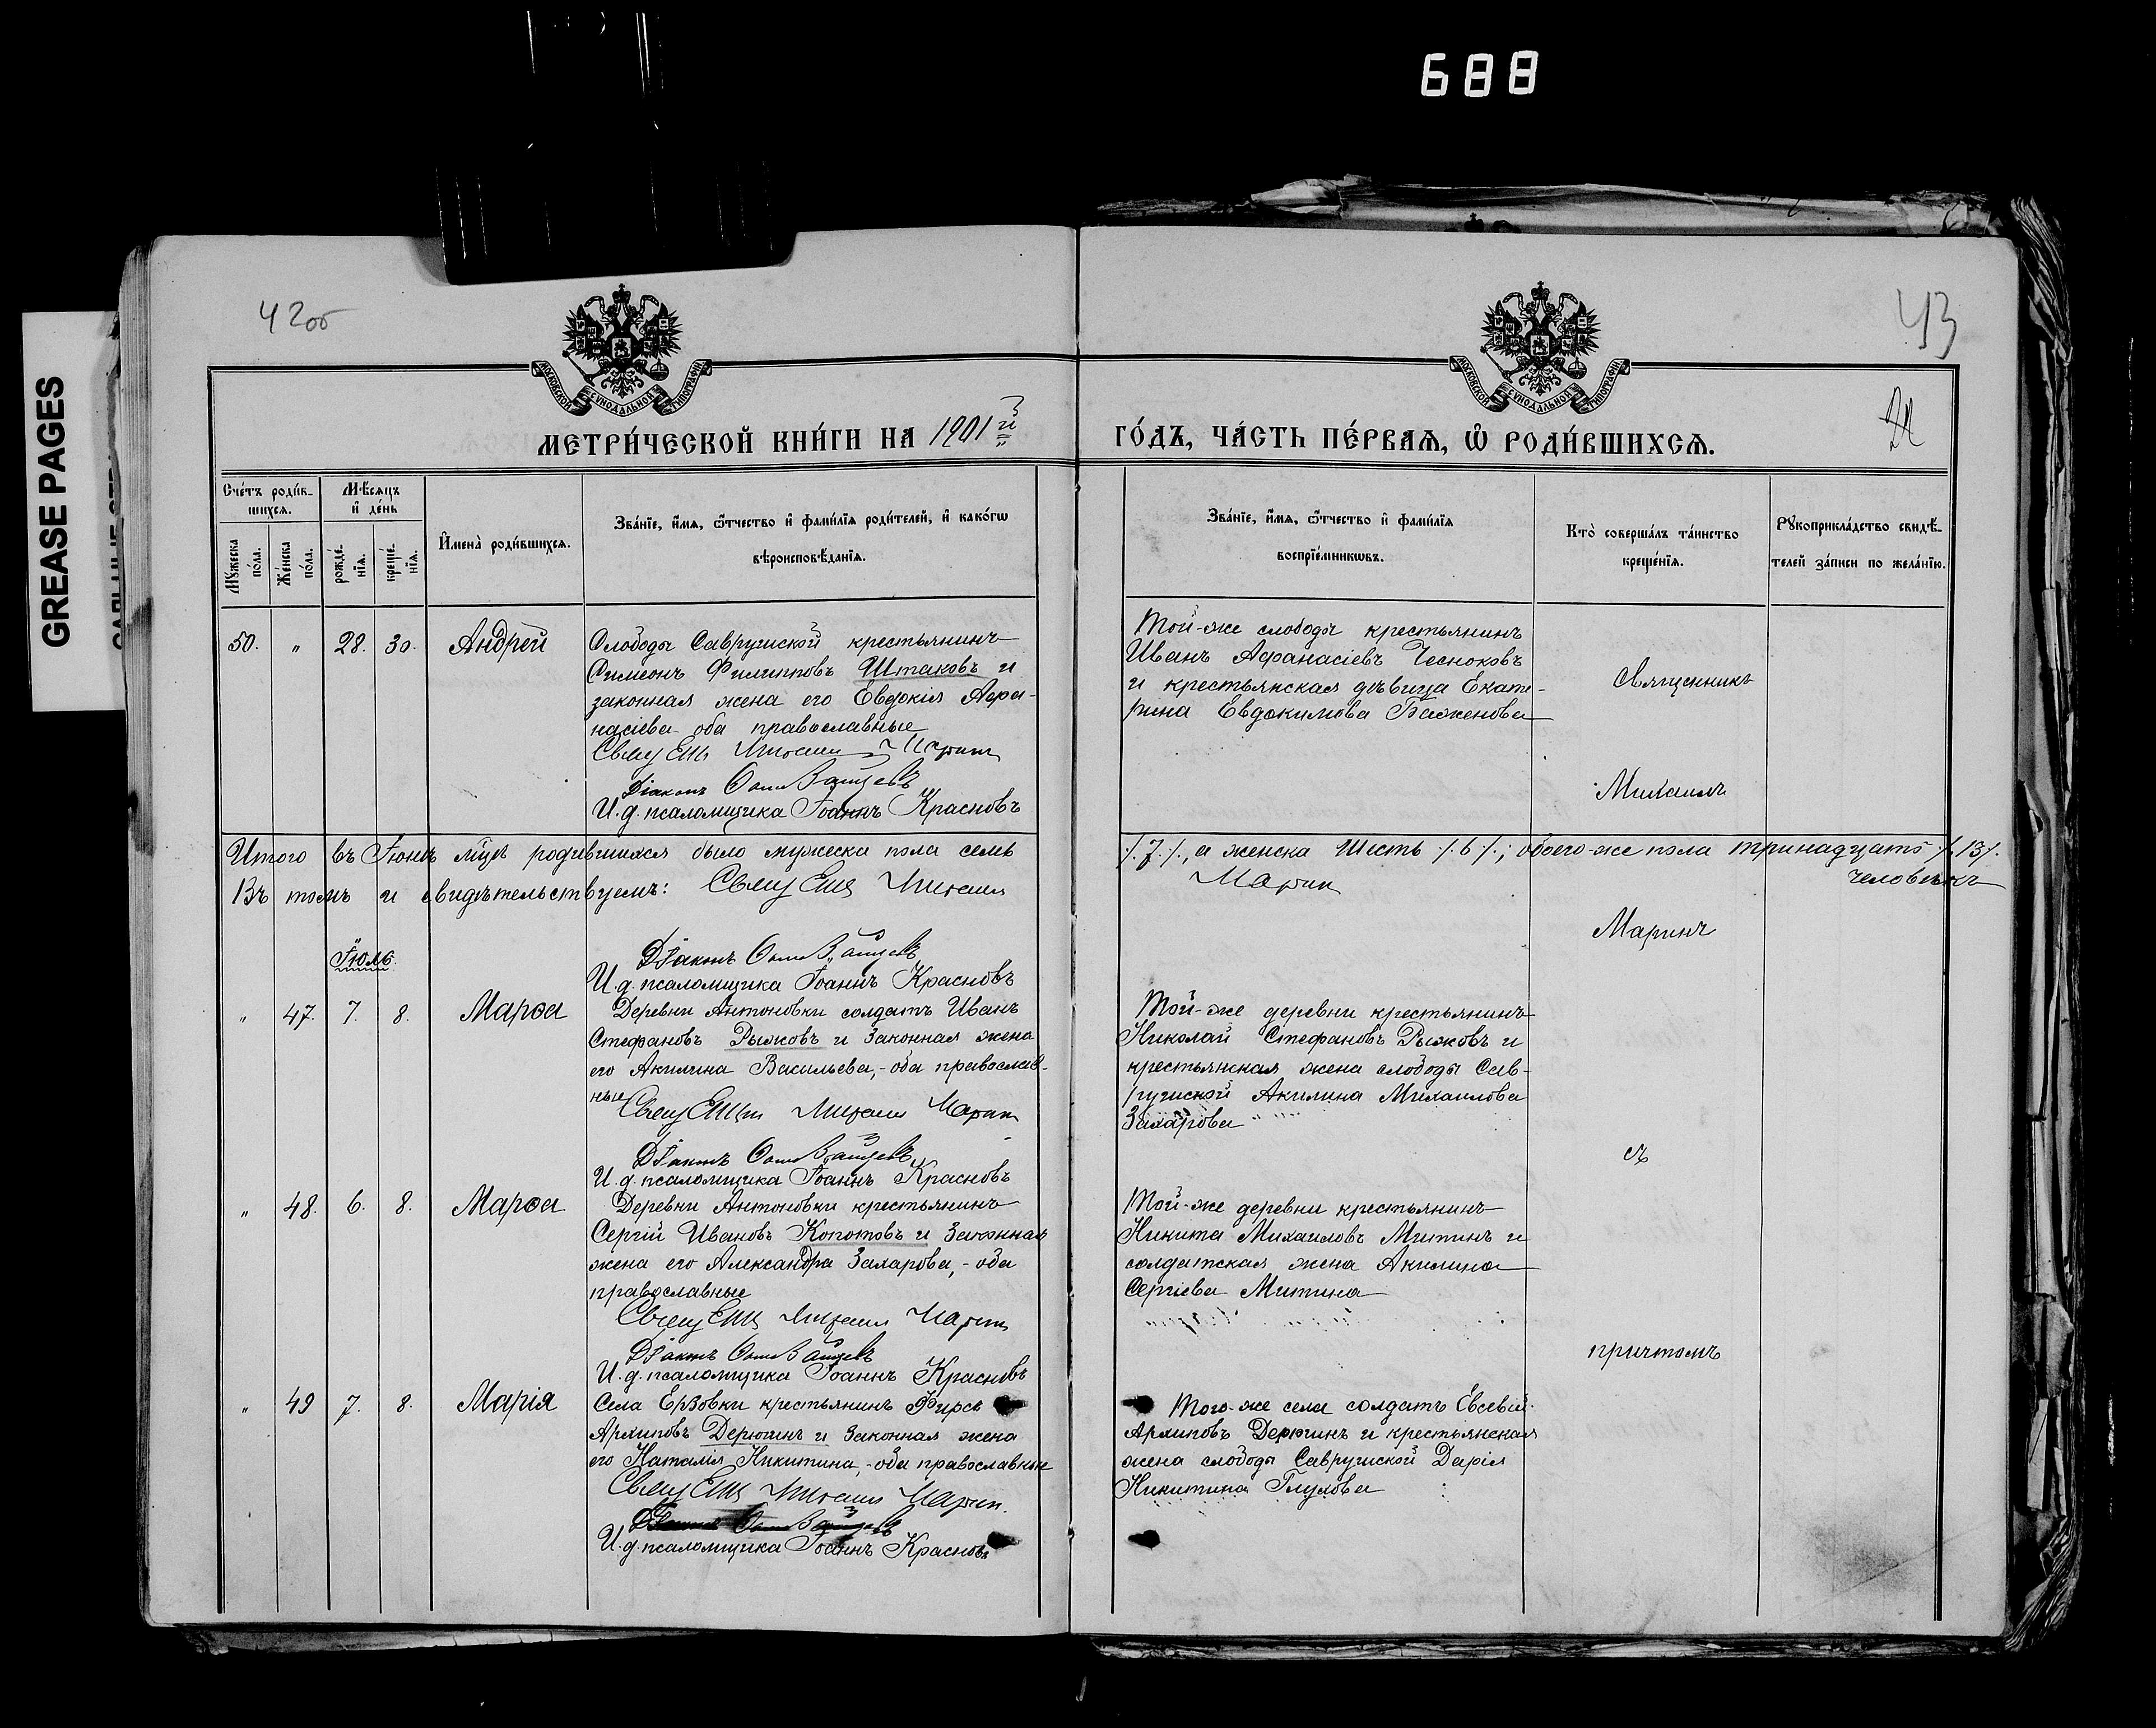 688
GREASE PAGES
42об
43
МОСКОВСКОЙ СѴНОДАЛЬНОЙ ТИПОГРАФІИ
МОСКОВСКОЙ СѴНОДАЛЬНОЙ ТИПОГРАФІИ
МЕТРИ́ЧЕСКОЙ КНИ́ГИ НА 1901й
ГО́ДЪ, ЧА́СТЬ ПЕ́РВАѦ, Ѡ҆ РОДИ́ВШИХСѦ.
Сче́тъ роди́в-
шихсѧ.
Мѣ́сѧцъ
и҆ де́нь
Мꙋ́жеска по́ла.
Же́нска по́ла.
рожде́-нїѧ.
креще́-нїѧ.
И҆мена̀ роди́вшихсѧ.
Зва́нїе, и҆́мѧ, ѻ҆́тчество и҆ фами́лїѧ роди́телей, и҆ како́гѡ
вѣроисповѣ́данїѧ.
Зва́нїе, и҆́мѧ, ѻ҆́тчество и҆ фами́лїѧ
воспрїе́мникѡвъ.
Кто̀ соверша́лъ та́инство
креще́нїѧ.
Рꙋкоприкла́дство свидѣ́-
телей за́писи по жела́нїю.
50. " 28. 30. Андрей
Слободы Савружской крестьянинъ
Симеонъ Филипповъ Штаковъ и
законная жена его Евдокія Афа-
насіева оба православные
Свящ Михаилъ Маринъ
Діаконъ
И. д. псаломщика Іоаннъ Красновъ
Той-же слободы крестьянинъ
Иванъ Афанасіевъ Чесноковъ
и крестьянская дѣвица Екате-
рина Евдокимова Баженова
Священникъ
Михаилъ
Итого въ Іюнѣ мцѣ родившихся было мужеска пола семь
./.7./., а женска шесть ./.6./.; обоего-же пола тринадцать ./.13/.
человѣкъ
Въ томъ и свидѣтельствуемъ: Свящ Михаилъ
Маринъ
Маринъ
Іюль.
Діаконъ
И. д. псаломщика Іоаннъ Красновъ
" 47. 7. 8. Марѳа
Деревни Антоновки солдатъ Иванъ
Стефановъ Рыжковъ и законная жена
его Акилина Васильева, - оба православ-
ные
Свящ Михаилъ Маринъ
Діаконъ
И. д. псаломщика Іоаннъ Красновъ
Той-же деревни крестьянинъ
Николай Стефановъ Рыжковъ и
крестьянская жена слободы Сав-
ружской Акилина Михаилова
Захарова
съ
" 48. 6. 8. Марѳа
Деревни Антоновки крестьянинъ
Сергій Ивановъ Копотовъ и законная
жена его Александра Захарова, - оба
православные
Свящ Михаилъ Маринъ
Діаконъ
И. д. псаломщика Іоаннъ Красновъ
Той-же деревни крестьянинъ
Никита Михаиловъ Митинъ и
солдатская жена Акилина
Сергіева Митина
причтомъ
" 49 7. 8. Марія
Села Ерзовки крестьянинъ Фирсъ
Архиповъ Дерюгинъ и законная жена
его Наталія Никитина, - оба православные
Свящ Михаилъ Маринъ.
И. д. псаломщика Іоаннъ Красновъ
Того-же села солдатъ Евсевій
Архиповъ Дерюгинъ и крестьянская
жена слободы Савружской Дарія
Никитина Глухова